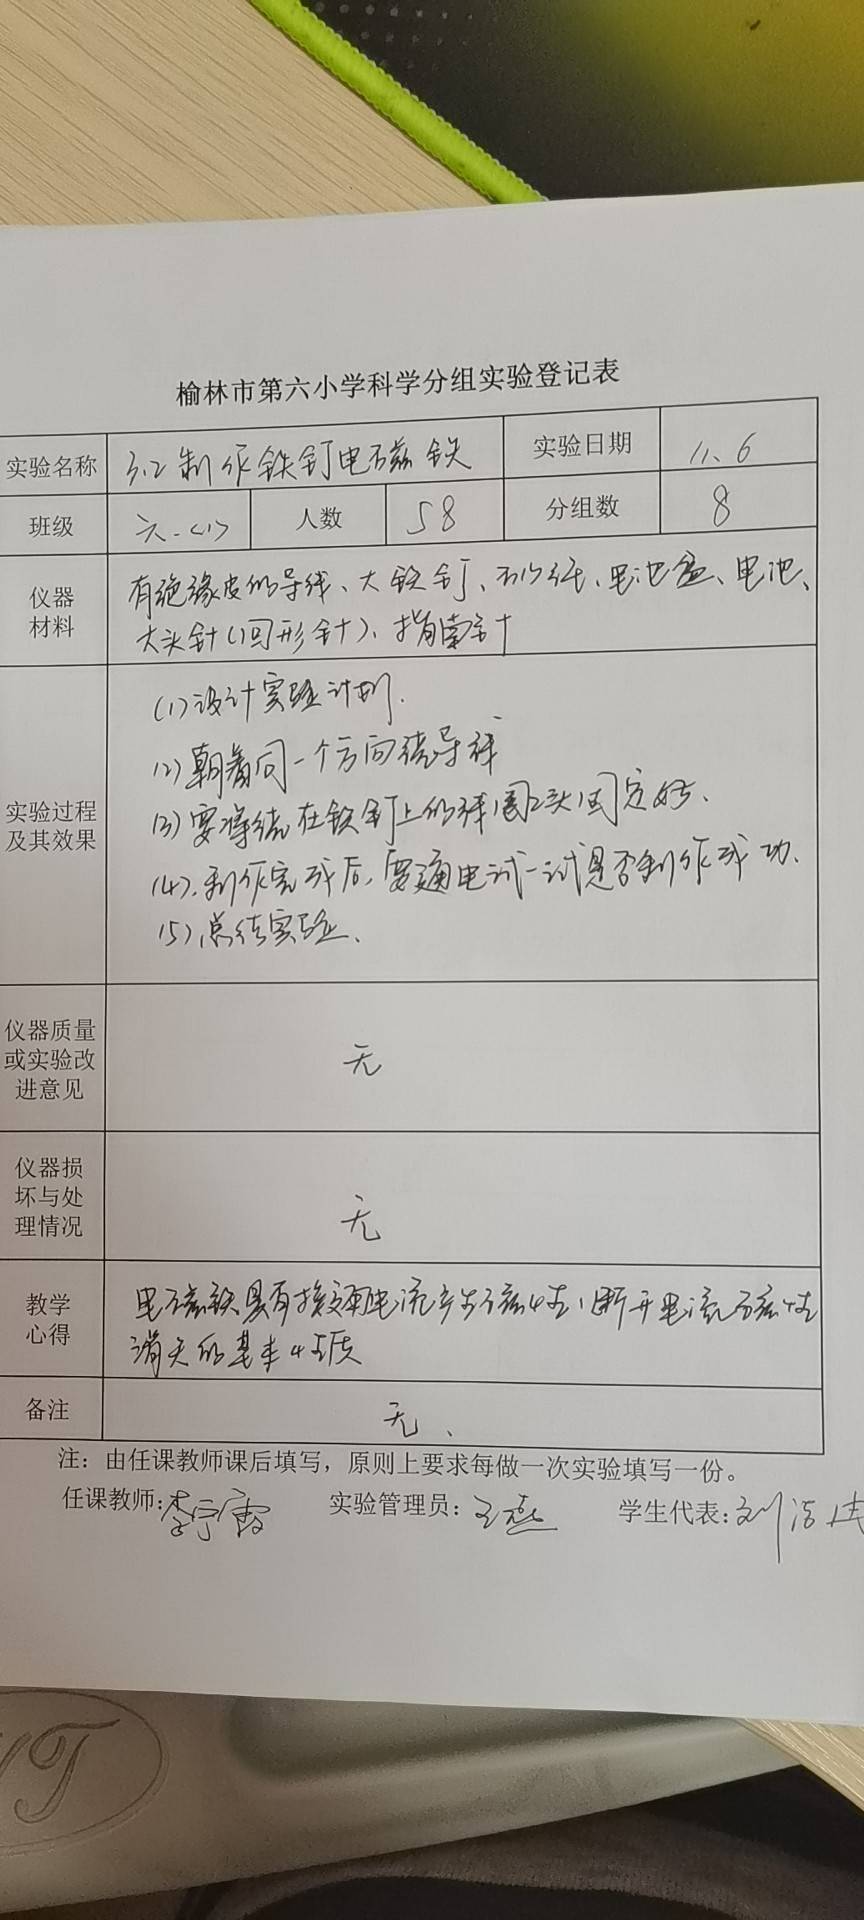 榆林市第六小学科学分组实验登记表
实验名称 3.2制作铁钉电磁铁 实验日期 11.6
班级 六.(1) 人数 58 分组数 8
仪器材料 有绝缘皮的导线、大铁钉、砂纸、电池盒、电池、
大头针(回形针)、指南针
实验过程及其效果
(1)设计实验计划.
(2)朝着同一个方向绕导线
(3)要将绕在铁钉上的线圈2头固定好、
(4).制作完成后,要通电试一试是否制作成功.
(5)、总结实验、
仪器质量或实验改进意见 无
仪器损坏与处理情况 无
教学心得 电磁铁具有接通电流产生磁性,断开电流磁性
消失的基本性质
备注 无、
注：由任课教师课后填写，原则上要求每做一次实验填写一份。
任课教师: 李宇霞 实验管理员: 王燕 学生代表: 刘